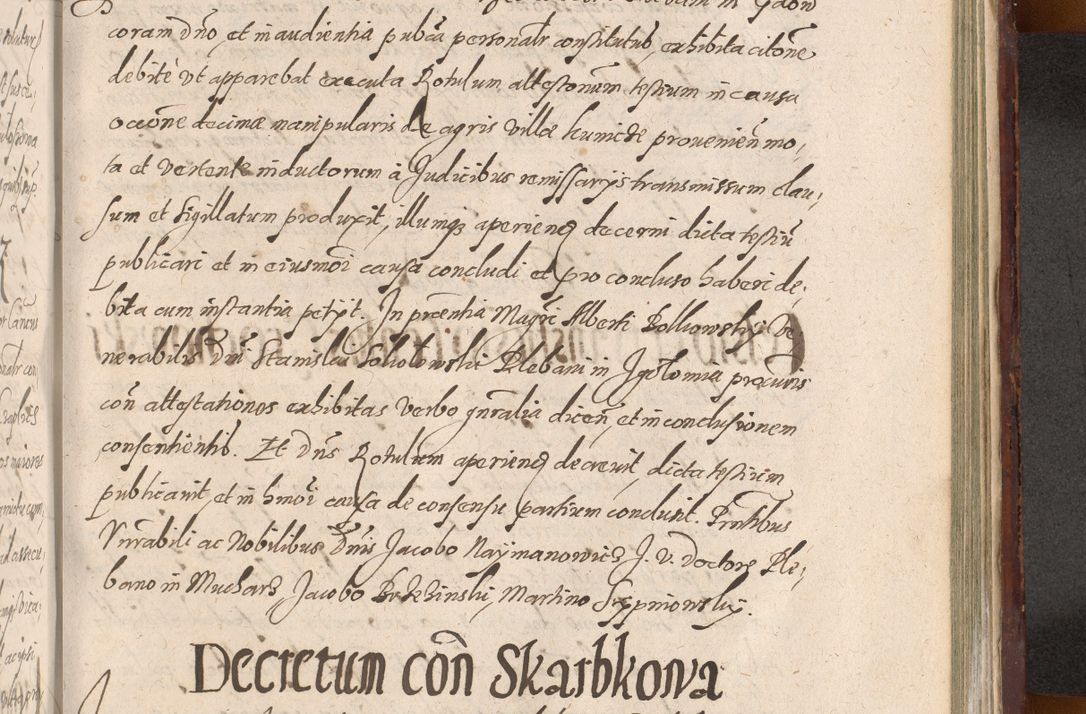 coram dño, et in audientia pubca personalr constitutus, exhibita citõne
debitè vt apparebat executa Rotulum attestonum testium in causa
occõne decimæ manipularis de agris villæ hunicze prouenieñ mo,
ta et vertente inductorum à Judicibus remissarijs transmissum clau,
sum et sigillatum produxit, illumq; aperiend decerni dicta testiũ
publicari et in eiusmõi causa concludi et pro concluso haberi de,
bita cum instantia petijt. In prcentia Magri Alberti Polkowskij Ve,
nerabilis Dni Stanislai Sokolowski Plebani in Igolomia procuris
coñ attestationes exhibitas verbo gnralia diceñ, et in conclusionem
consentientis. Et Dñs Rotulum aperiend decreuit, dicta testium
publicauit, et in hmõi causa de consensu partium conclusit. Pntibus
Vnrabili ac Nobilibus Dnis Jacobo Naymanowicz J. V. Doctore Ple,
bano in Mucharz, Jacobo Brzezinski, Martino Trypniowskij.
Decretum coñ Skarbkowa